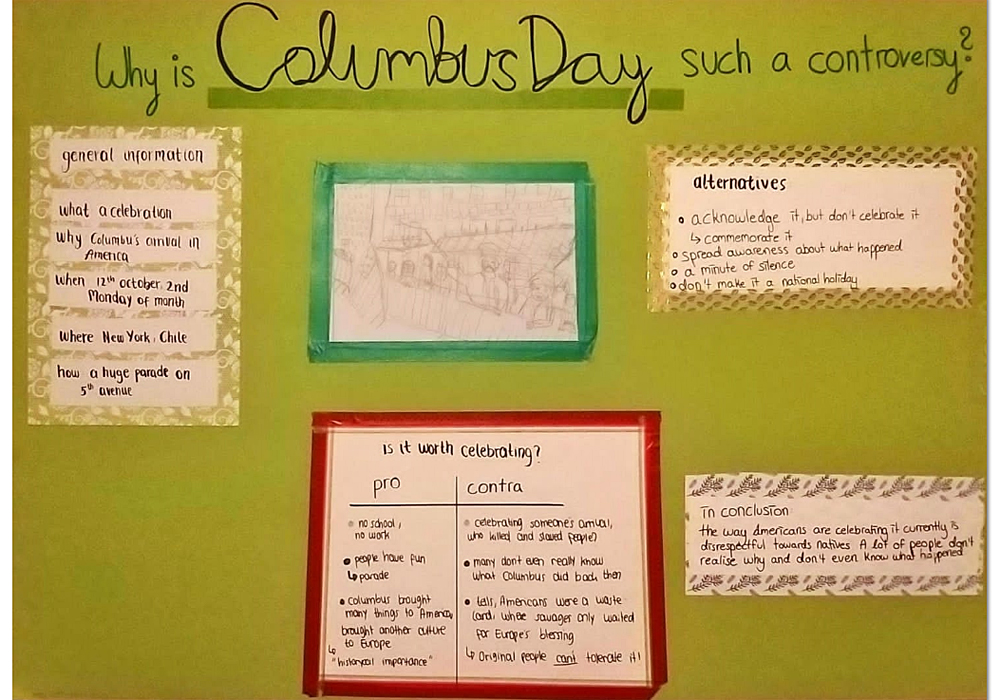 Why is Columbus Day such a controversy?
general information
what a celebration
why Columbu's arrival in
America
when 12th october, 2nd
Monday of month
where New York, Chile
how a huge parade on
5th avenue
alternatives
acknowledge it, but don't celebrate it
↳ commemorate it
spread awareness about what happened
a minute of silence
don't make it a national holiday
Is it worth celebrating?
pro
contra
no school,
no work
people have fun
↳ parade
Columbus brought
many things to America,
brought another culture
to Europe
↳
"historical importance"
celebrating someone's arrival,
who killed (and slaved people)
many don't even really know
what Columbus did back then
Americans were a waste
land, where savages only waited
for Europe's blessing
↳ Original people can't tolerate it!
In conclusion
the way Americans are celebrating it currently is
disrespectful towards natives. A lot of people don't
realise why and don't even know what happened